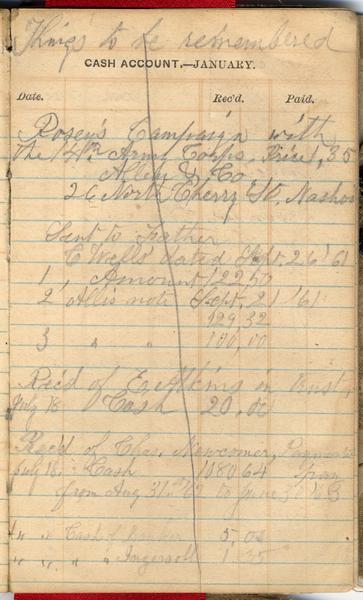 Things to be remembered
CASH ACCOUNT.—JANUARY.
Date. Rec'd. Paid.
Rosey's Campaign with
the 14th Army Corps. Price 1,35
& Co
26 North Cherry St, Nash
Sent to Father
C Wells dated Sept. 26 '61
1, Amount 122,50
2 note Sept. 21 '61
129,32
3 " " 100,00
Rec'd of in trust,
July 18 Cash 20.00
Rec'd of Chas. Newcomer,
July 18. Cash 1080 64
from Aug 31st to June
" " Cash of 5,00
" " " " Ingersoll 1.35